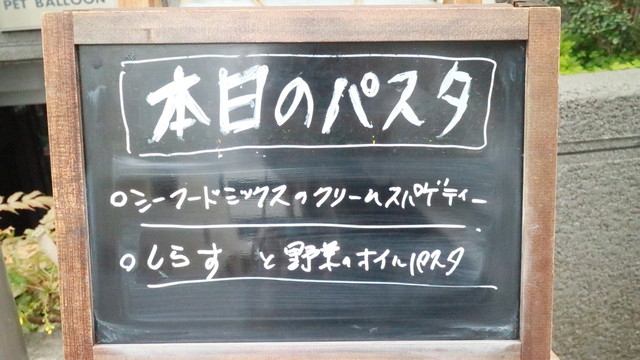 PET BALLOON
本日のパスタ
○シーフードミックスのクリームスパゲティー
○しらす と 野菜のオイルパスタ